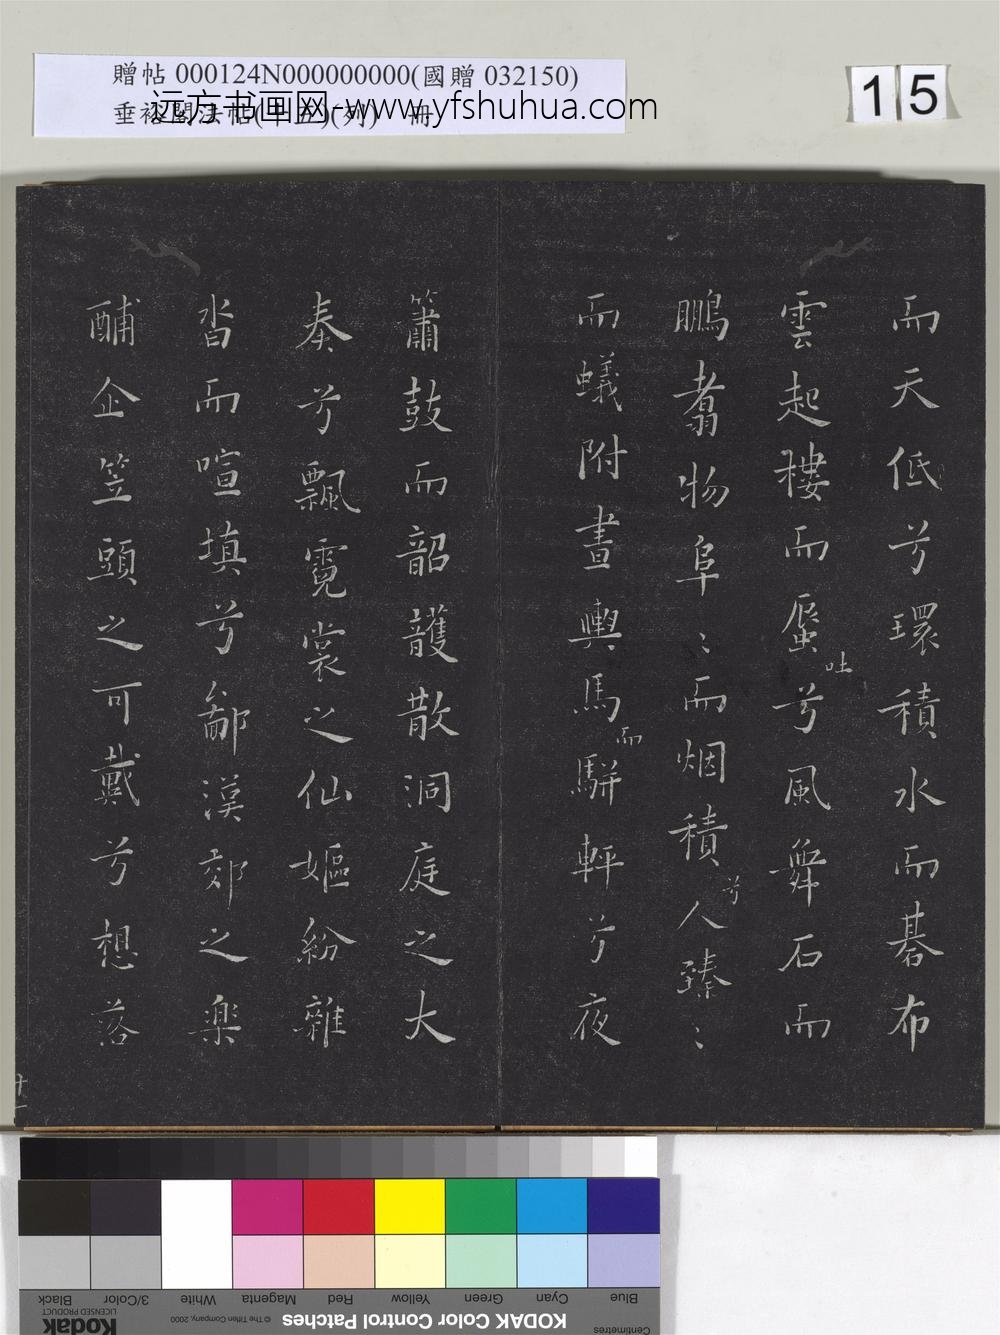 贈帖 000124N000000000(國贈 032150)
垂裕閣法帖(十五)(列) 冊
远方书画网-www.yfshuhua.com
15
而天低兮環積水而碁布
雲起樓而蜃吐兮風舞石而
鵬翥物阜〻而烟積兮人臻〻
而蟻附晝輿馬而駢軿兮夜
簫鼓而韶頀散洞庭之大
奏兮飄霓裳之仙嫗紛雜
沓而喧填兮鄃漢郊之樂
酺企笠頭之可戴兮想落
十一
Blue
Cyan
Green
Yellow
Red
Magenta
White
3/Color
Black
Centimetres
KODAK Color Control Patches
© The Tiffen Company, 2000
Kodak
LICENSED PRODUCT